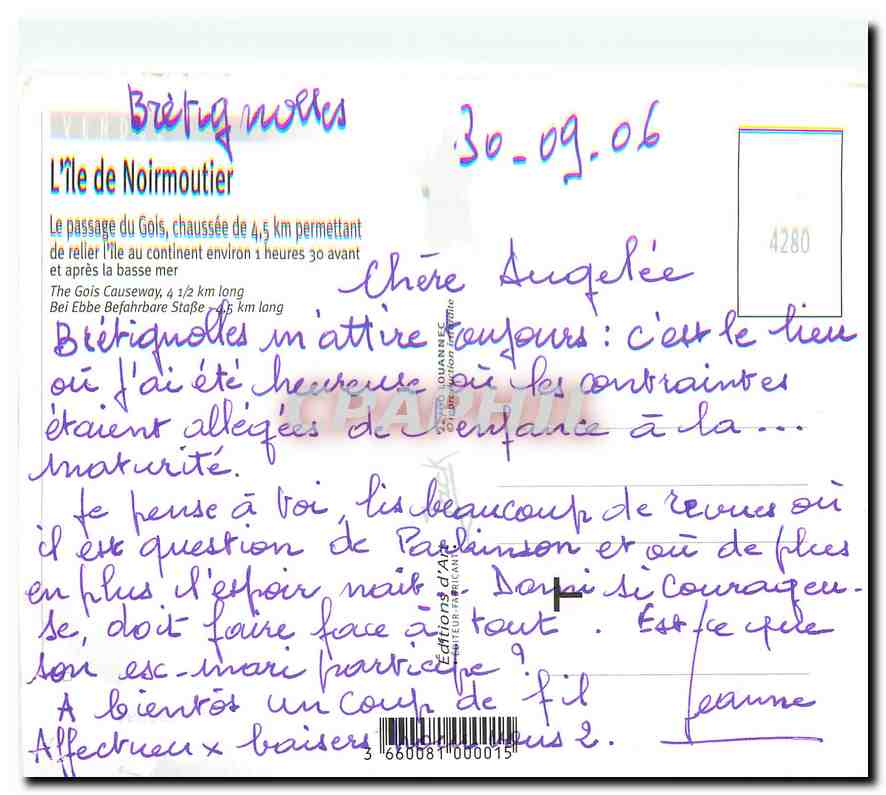 Brètignolles
30-09-06
VENDÉE
L'île de Noirmoutier
Le passage du Gois, chaussée de 4,5 km permettant
de relier l'île au continent environ 1 heures 30 avant
et après la basse mer
The Gois Causeway, 4 1/2 km long
Bei Ebbe Befahrbare Staße - 4,5 km long
4280
Chère Angelée
Brétignolles m'attire toujours : c'est le lieu
où j'ai été heureuse où les contraintes
étaient allégées de l'enfance à la ...
maturité.
Je pense à toi, lis beaucoup de revues où
il est question de Parkinson et où de plus
en plus l'espoir naît. si courageu-
se, doit faire face à tout. Est-ce que
son ex-mari participe ?
A bientôt un coup de fil
Jeanne
Affectueux baisers vous 2.
CPAPHIL
LOUANNEC
©reproduction interdite
JACK
Éditions d'Art
ÉDITEUR-FABRICANT
3 660081 000015